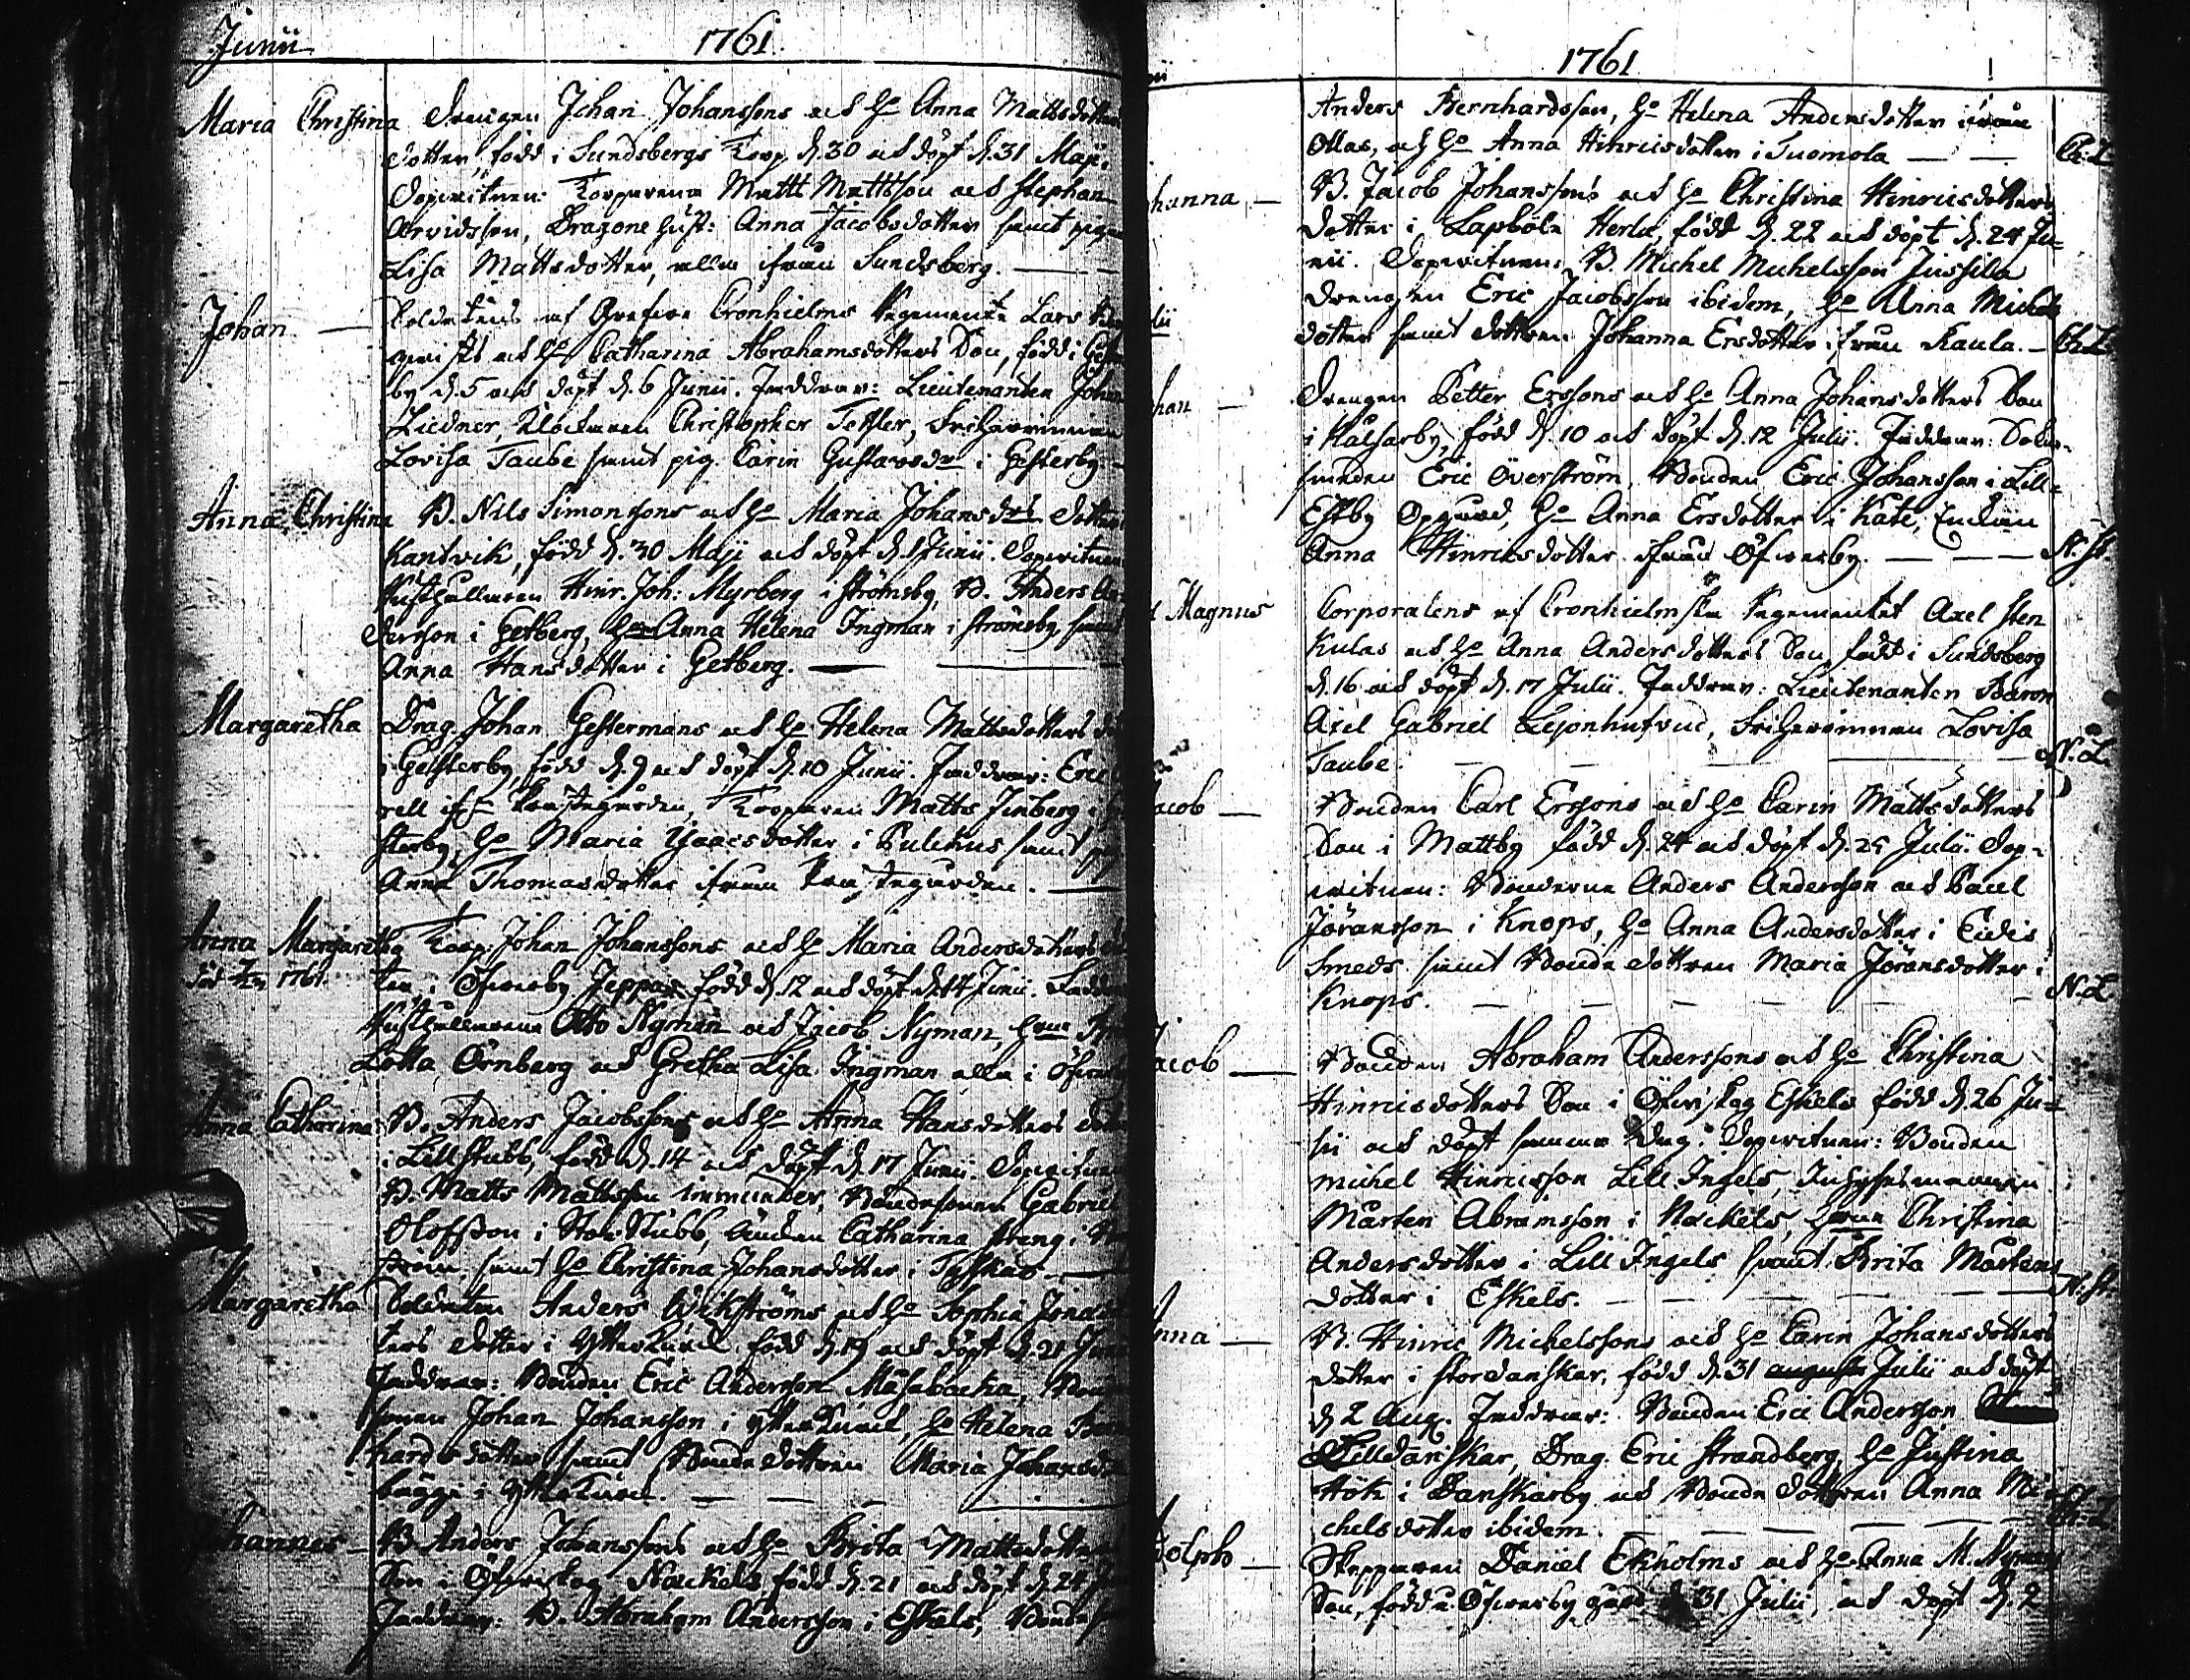 Junii 1761
Maria Christina Drängen Johan Johanssons och h: Anna Mattsdotters
dotter, född i Sundsbergs Torp d. 30 och döpt d. 31 Maji.
Dopvitnen: Torparena Matts Mattsson och Stephan
Arvidsson, Dragone hust: Anna Jacobsdotter samt pigan
Lisa Mattsdotter, alla ifrån Sundsberg.
Johan Soldatens af Grefve Cronhielms Regemente Lars
qwists och h: Catharina Abrahamsdotters Son, född i Gester
by d. 5 och döpt d. 6 Junii. Faddrar: Lieutenanten Johan
Liedner, Klockaren Christopher Tessler, Friherrinnan
Lovisa Taube samt pig. Carin Gustavsdr i Gesterby
Anna Christina B. Nils Simonssons och h: Maria Johansdrs dotter
Kantvik, född d. 30 Maji och döpt d. 1 Junii. Dopvitnen
Rusthållaren Hinr. Joh: Myrberg i Strömsby, B. Anders An
dersson i Getberg, Anna Helena Ingman i Strömsby, samt
Anna Hansdotter i Getberg.
Margaretha Drag. Johan Gestermans och h: Helena Mattsdotters
i Gesterby född d. 9 och döpt d. 10 Junii. Faddrar: Eric
rell if: Prestegården, Torparen Matts Finberg i Ge
sterby, h: Maria Isaacsdotter i Pulckus samt pig
Anna Thomasdotter ifrån Prestegården.
Anna Margaretha Torp. Johan Johanssons och h: Maria Andersdotters
död 1761. ter i Öfverby Jeppas född d. 12 och döpt d. 14 Junii. Faddrar
Rusthållarena Otto Nyman och Jacob Nyman,
Lotta Örnberg och Gretha Lisa Ingman alla i Öfverby
Anna Catharina B. Anders Jacobssons och h: Anna Hansdotters dotter
i Lillstubb, född d. 14 och döpt d. 17 Junii. Dopvitnen
B. Matts Mattsson Bondesonen Gabriel
Olofsson i Stor Stubb, Catharina Streng i
ström, samt h: Christina Johansdotter i
Margaretha Soldaten Anders Wikströms och h: Sophia
ters dotter i Ytterkurk född d. 19 och döpt d. 21 Junii
Faddrar: Bonden Eric Andersson Måsabacka, Bonde
sonen Johan Johansson i Ytterkurk, h: Helena Bern
hardsdotter samt Bondedottren Maria Johansdr
bägge i Ytterkurk.
Johannes B. Anders Johanssons och h: Brita Mattsdotters
Son i Öfvitskog Nackels, född d. 21 och döpt d. 24
Faddrar: B. Abraham Andersson i Eskels, Bonde
1761
Anders Bernhardsson, h: Helena Andersdotter ifrån
Ollas, och h: Anna Hinricsdotter i Tuomola Ch: L
hanna B. Jacob Johanssons och h: Christina Hinricsdotters
dotter i Lapböle Herlu, född d. 22 och döpt d. 24 Ju-
nii. Dopvitnen: B. Michel Michelsson Jussila
Drengen Eric Jacobsson ibidem, h: Anna Michels
dotter samt dottren Johanna Ersdotter ifrån Kaula. Ch: L
han Drengen Petter Erssons och h: Anna Johansdotters Son
i Kålsarby, född d. 10 och döpt d. 12 Julii. Faddrar:
smeden Eric Överström, Bonden Eric Johansson i Lill-
Estby Opgård, h: Anna Ersdotter i Kate, Enkan
Anna Hinricsdotter ifrån Öfverby. N. St.
Magnus Corporalens af Cronhielmska Regementet Axel Sten
Kulas och h: Anna Andersdotters Son född i Sundsberg
d. 16 och döpt d. 17 Julii. Faddrar: Lieutenanten Baron
Axel Gabriel Lejonhufvud, Friherrinnan Lovisa
Taube. N. L.
Jacob Bonden Carl Erssons och h: Carin Mattsdotters
Son i Mattby född d. 24 och döpt d. 25 Julii. Dop-
vitnen: Bönderna Anders Andersson och Paul
Jöransson i Knops, h: Anna Andersdotter i Eidis
Smeds samt Bonde dottren Maria Jöransdotter i
Knops. N. L
Jacob Bonden Abraham Anderssons och h: Christina
Hinricsdotters Son i Öfvitskog Eskels född d. 26 Ju-
lii och döpt samma dag. Dopvitnen: Bonden
Michel Hinricsson Lill Ingels,
Mårten Abramsson i Nackels, Christina
Andersdotter i Lill Ingels samt Brita Mårtens
dotter i Eskels. N. St.
Anna B. Hinric Michelssons och h: Carin Johansdotters
dotter i Stordanskar, född d. 31 Julii och döpt
d 2 Aug. Faddrar: Bonden Eric Andersson
Lilldanskar, Drag. Eric Strandberg, h: Justina
Hök i Danskarby och Bonde dottren Anna Mi-
chelsdotter ibidem. Ch: L
dolph Skepparen Daniel Ekholms och h: Anna M. Nymans
Son, född i Öfverby gård d. 31 Julii, och döpt d. 2